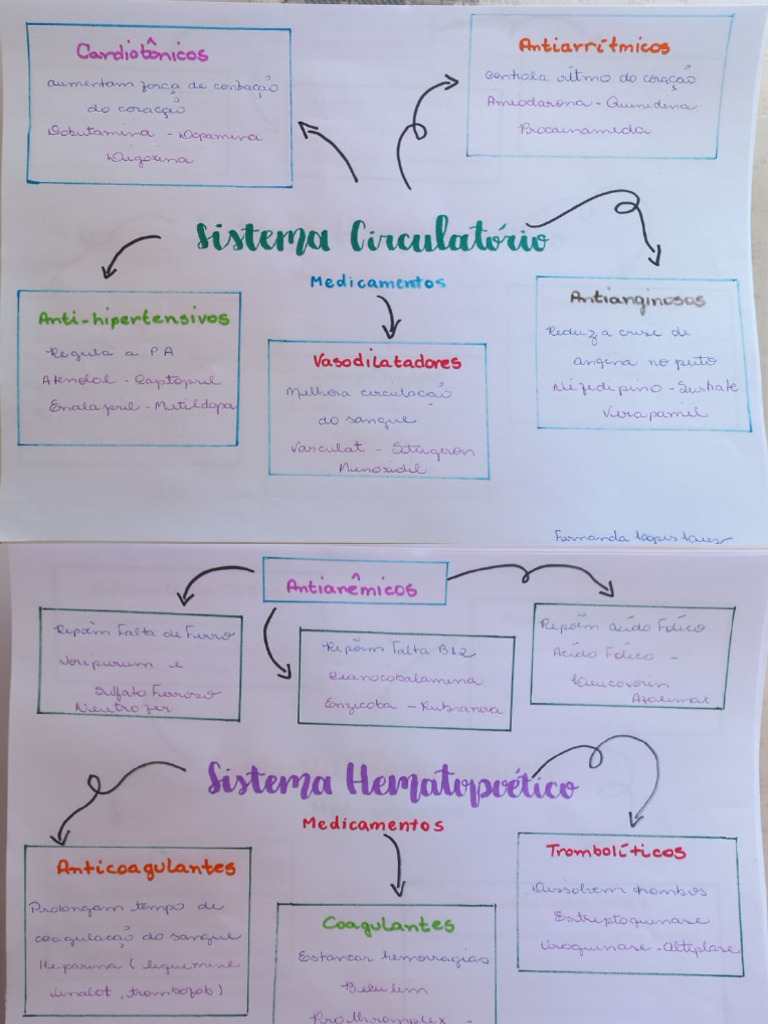 Cardiotônicos
aumentam força de contração
do coração
Dobutamina - Dopamina
Digoxina
Antiarrítmicos
Controla ritmo do coração
Amiodarona - Quinidina
Procainamida
Sistema Circulatório
Medicamentos
Anti-hipertensivos
Regula a PA
Atenolol - Captopril
Enalapril - Metildopa
Vasodilatadores
Melhora circulação
do sangue
Vasculat - Stugeron
Minoxidil
Antianginosos
Reduz a crise de
angina no peito
Nifedipino - Sustrate
Verapamil
Fernanda Lopes
Antianêmicos
Repõem Falta de Ferro
Noripurum e
Sulfato Ferroso
Neutrofer
Repõem Falta B12
Cianocobalamina
Enzicoba - Rubranova
Repõem ácido Fólico
Ácido Fólico -
Leucovorin
Sistema Hematopoético
Medicamentos
Anticoagulantes
Prolongam tempo de
coagulação do sangue
Heparina ( liquemine
, trombofob)
Coagulantes
Estancar hemorragias
Beriplex
Prothromplex -
Trombolíticos
Dissolvem trombos
Estreptoquinase
Uroquinase - Alteplase